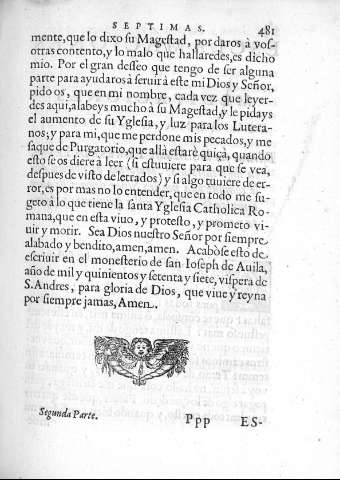 SEPTIMAS. 481
mente, que lo dixo su Magestad, por daros à vos-
otras contento, y lo malo que hallaredes, es dicho
mio. Por el gran desseo que tengo de ser alguna
parte para ayudaros à seruir à este mi Dios y Señor,
pido os, que en mi nombre, cada vez que leyer-
des aqui, alabeys mucho à su Magestad, y le pidays
el aumento de su Yglesia, y luz para los Lutera-
nos; y para mi, que me perdone mis pecados, y me
saque de Purgatorio, que allà estarè quiçà, quando
esto se os diere à leer (si estuuiere para que se vea,
despues de visto de letrados) y si algo tuuiere de er-
ror, es por mas no lo entender, que en todo me su-
geto à lo que tiene la santa Yglesia Catholica Ro-
mana, que en esta viuo, y protesto, y prometo vi-
uir y morir. Sea Dios nuestro Señor por siempre
alabado y bendito, amen, amen. Acabòse esto de
escriuir en el monesterio de san Ioseph de Auila,
año de mil y quinientos y setenta y siete, vispera de
S. Andres, para gloria de Dios, que viue y reyna
por siempre jamas, Amen.
Segunda Parte. Ppp ES-